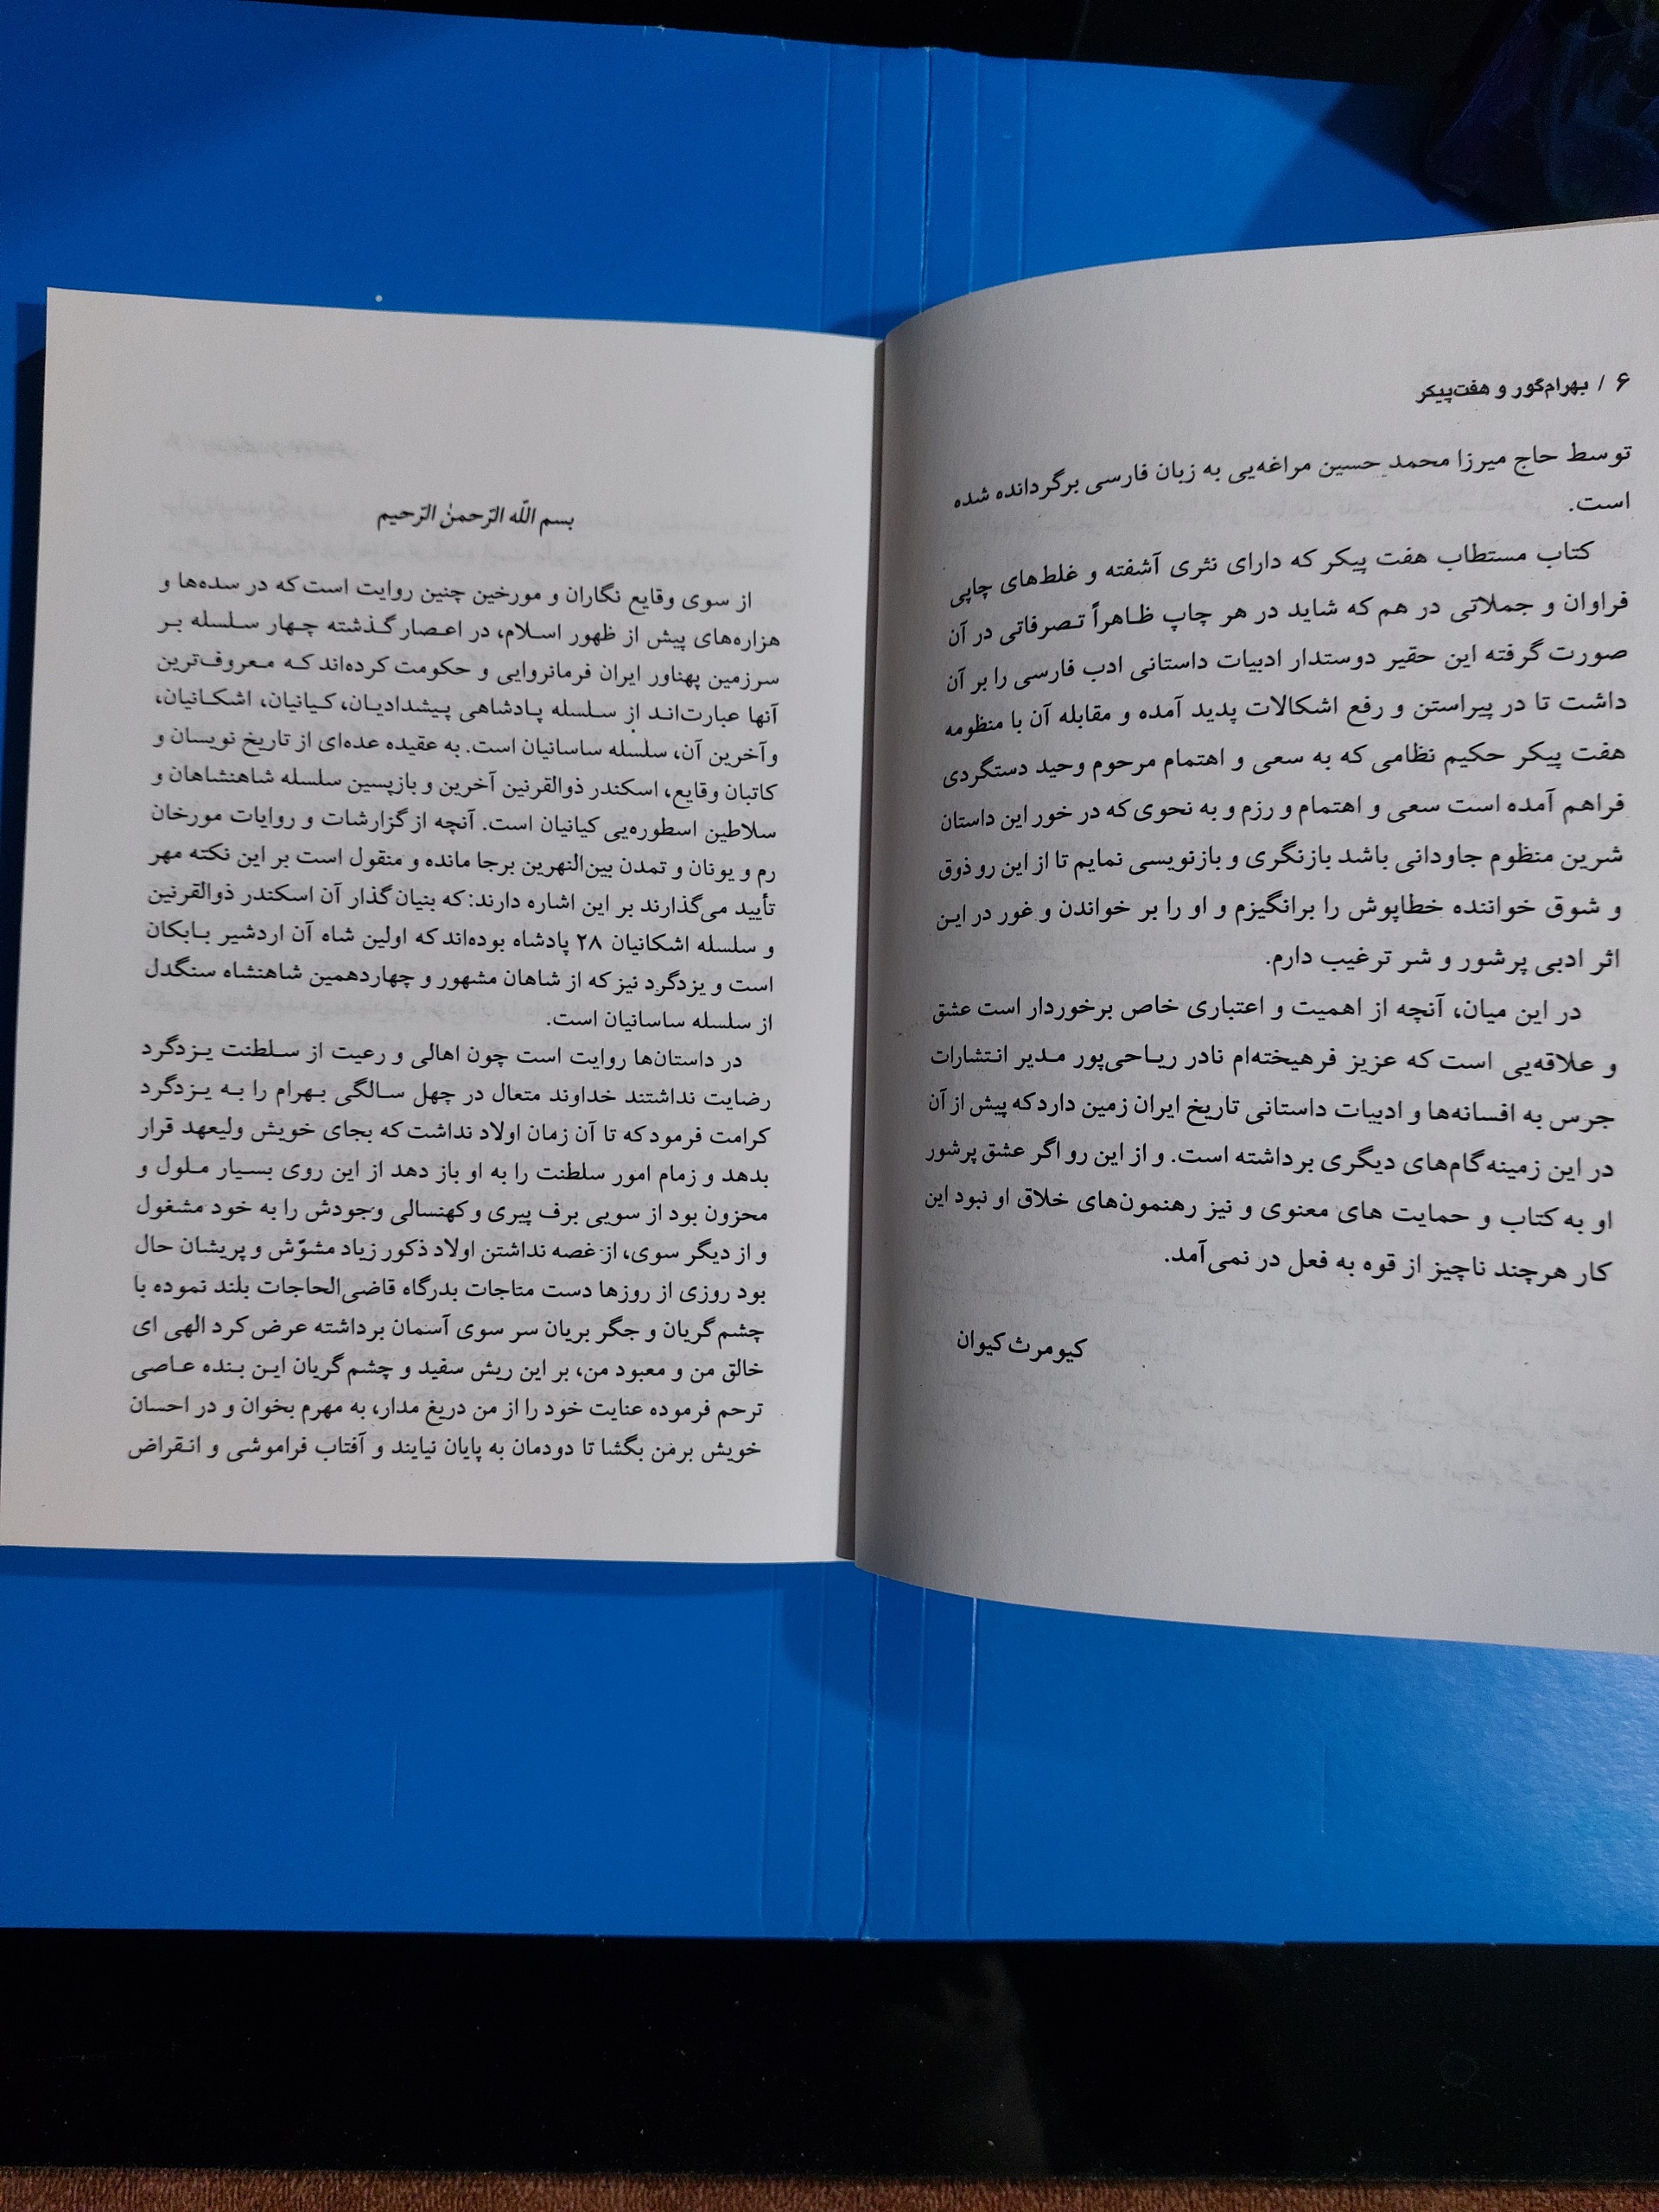 ۶ / بهرام‌گور و هفت‌پیکر
توسط حاج میرزا محمد حسین مراغه‌یی به زبان فارسی برگردانده شده
است.
کتاب مستطاب هفت پیکر که دارای نثری آشفته و غلط‌های چاپی
فراوان و جملاتی در هم که شاید در هر چاپ ظاهراً تصرفاتی در آن
صورت گرفته این حقیر دوستدار ادبیات داستانی ادب فارسی را بر آن
داشت تا در پیراستن و رفع اشکالات پدید آمده و مقابله آن با منظومه
هفت پیکر حکیم نظامی که به سعی و اهتمام مرحوم وحید دستگردی
فراهم آمده است سعی و اهتمام و رزم و به نحوی که در خور این داستان
شرین منظوم جاودانی باشد بازنگری و بازنویسی نمایم تا از این رو ذوق
و شوق خواننده خطاپوش را برانگیزم و او را بر خواندن و غور در این
اثر ادبی پرشور و شر ترغیب دارم.
در این میان، آنچه از اهمیت و اعتباری خاص برخوردار است عشق
و علاقه‌یی است که عزیز فرهیخته‌ام نادر ریاحی‌پور مدیر انتشارات
جرس به افسانه‌ها و ادبیات داستانی تاریخ ایران زمین دارد که پیش از آن
در این زمینه گام‌های دیگری برداشته است. و از این رو اگر عشق پرشور
او به کتاب و حمایت های معنوی و نیز رهنمون‌های خلاق او نبود این
کار هرچند ناچیز از قوه به فعل در نمی‌آمد.
کیومرث کیوان
بسم اللّه الرّحمنٰ الرّحیم
از سوی وقایع نگاران و مورخین چنین روایت است که در سده‌ها و
هزاره‌های پیش از ظهور اسلام، در اعصار گذشته چهار سلسله بر
سرزمین پهناور ایران فرمانروایی و حکومت کرده‌اند که معروف‌ترین
آنها عبارت‌اند از سلسله پادشاهی پیشدادیان، کیانیان، اشکانیان،
وآخرین آن، سلسله ساسانیان است. به عقیده عده‌ای از تاریخ نویسان و
کاتبان وقایع، اسکندر ذوالقرنین آخرین و بازپسین سلسله شاهنشاهان و
سلاطین اسطوره‌یی کیانیان است. آنچه از گزارشات و روایات مورخان
رم و یونان و تمدن بین‌النهرین برجا مانده و منقول است بر این نکته مهر
تأیید می‌گذارند بر این اشاره دارند: که بنیان گذار آن اسکندر ذوالقرنین
و سلسله اشکانیان ۲۸ پادشاه بوده‌اند که اولین شاه آن اردشیر بابکان
است و یزدگرد نیز که از شاهان مشهور و چهاردهمین شاهنشاه سنگدل
از سلسله ساسانیان است.
در داستان‌ها روایت است چون اهالی و رعیت از سلطنت یزدگرد
رضایت نداشتند خداوند متعال در چهل سالگی بهرام را به یزدگرد
کرامت فرمود که تا آن زمان اولاد نداشت که بجای خویش ولیعهد قرار
بدهد و زمام امور سلطنت را به او باز دهد از این روی بسیار ملول و
محزون بود از سویی برف پیری و کهنسالی وجودش را به خود مشغول
و از دیگر سوی، از غصه نداشتن اولاد ذکور زیاد مشوّش و پریشان حال
بود روزی از روزها دست متاجات بدرگاه قاضی‌الحاجات بلند نموده با
چشم گریان و جگر بریان سر سوی آسمان برداشته عرض کرد الهی ای
خالق من و معبود من، بر این ریش سفید و چشم گریان این بنده عاصی
ترحم فرموده عنایت خود را از من دریغ مدار، به مهرم بخوان و در احسان
خویش برمن بگشا تا دودمان به پایان نیایند و آفتاب فراموشی و انقراض